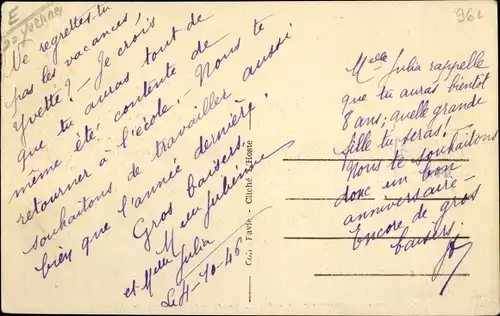 E
Yvelines
96L
Ne regrettes-tu
pas les vacances,
Yvette? - Je crois
que tu auras tout de
même été contente de
retourner à l'école. - Nous te
souhaitons de travailler aussi
bien que l'année dernière.
Gros baisers.
Mme Julienne
et Melle Julia
Le 4-10-46
Coll Favre - Cliché L'Hoste
Melle Julia rappelle
que tu auras bientôt
8 ans; quelle grande
fille tu seras!
Nous te souhaitons
donc un bon
anniversaire -
Encore de gros
baisers!